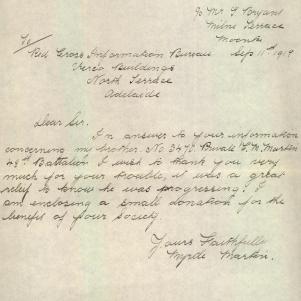 c/o Mr. S. Bryant
Milne Terrace
Moonta
Sep 11th 1917
To/
Red Cross Information Bureau
Verco Buildings
North Terrace
Adelaide
Dear Sir.
In answer to your information
concerning my brother. No 3478 Private L. M. Martin
49th Battalion I wish to thank you very
much for your trouble, it was a great
relief to know he was progressing. I
am enclosing a small donation for the
benefit of your society.
Yours Faithfully
Myrtle Martin.